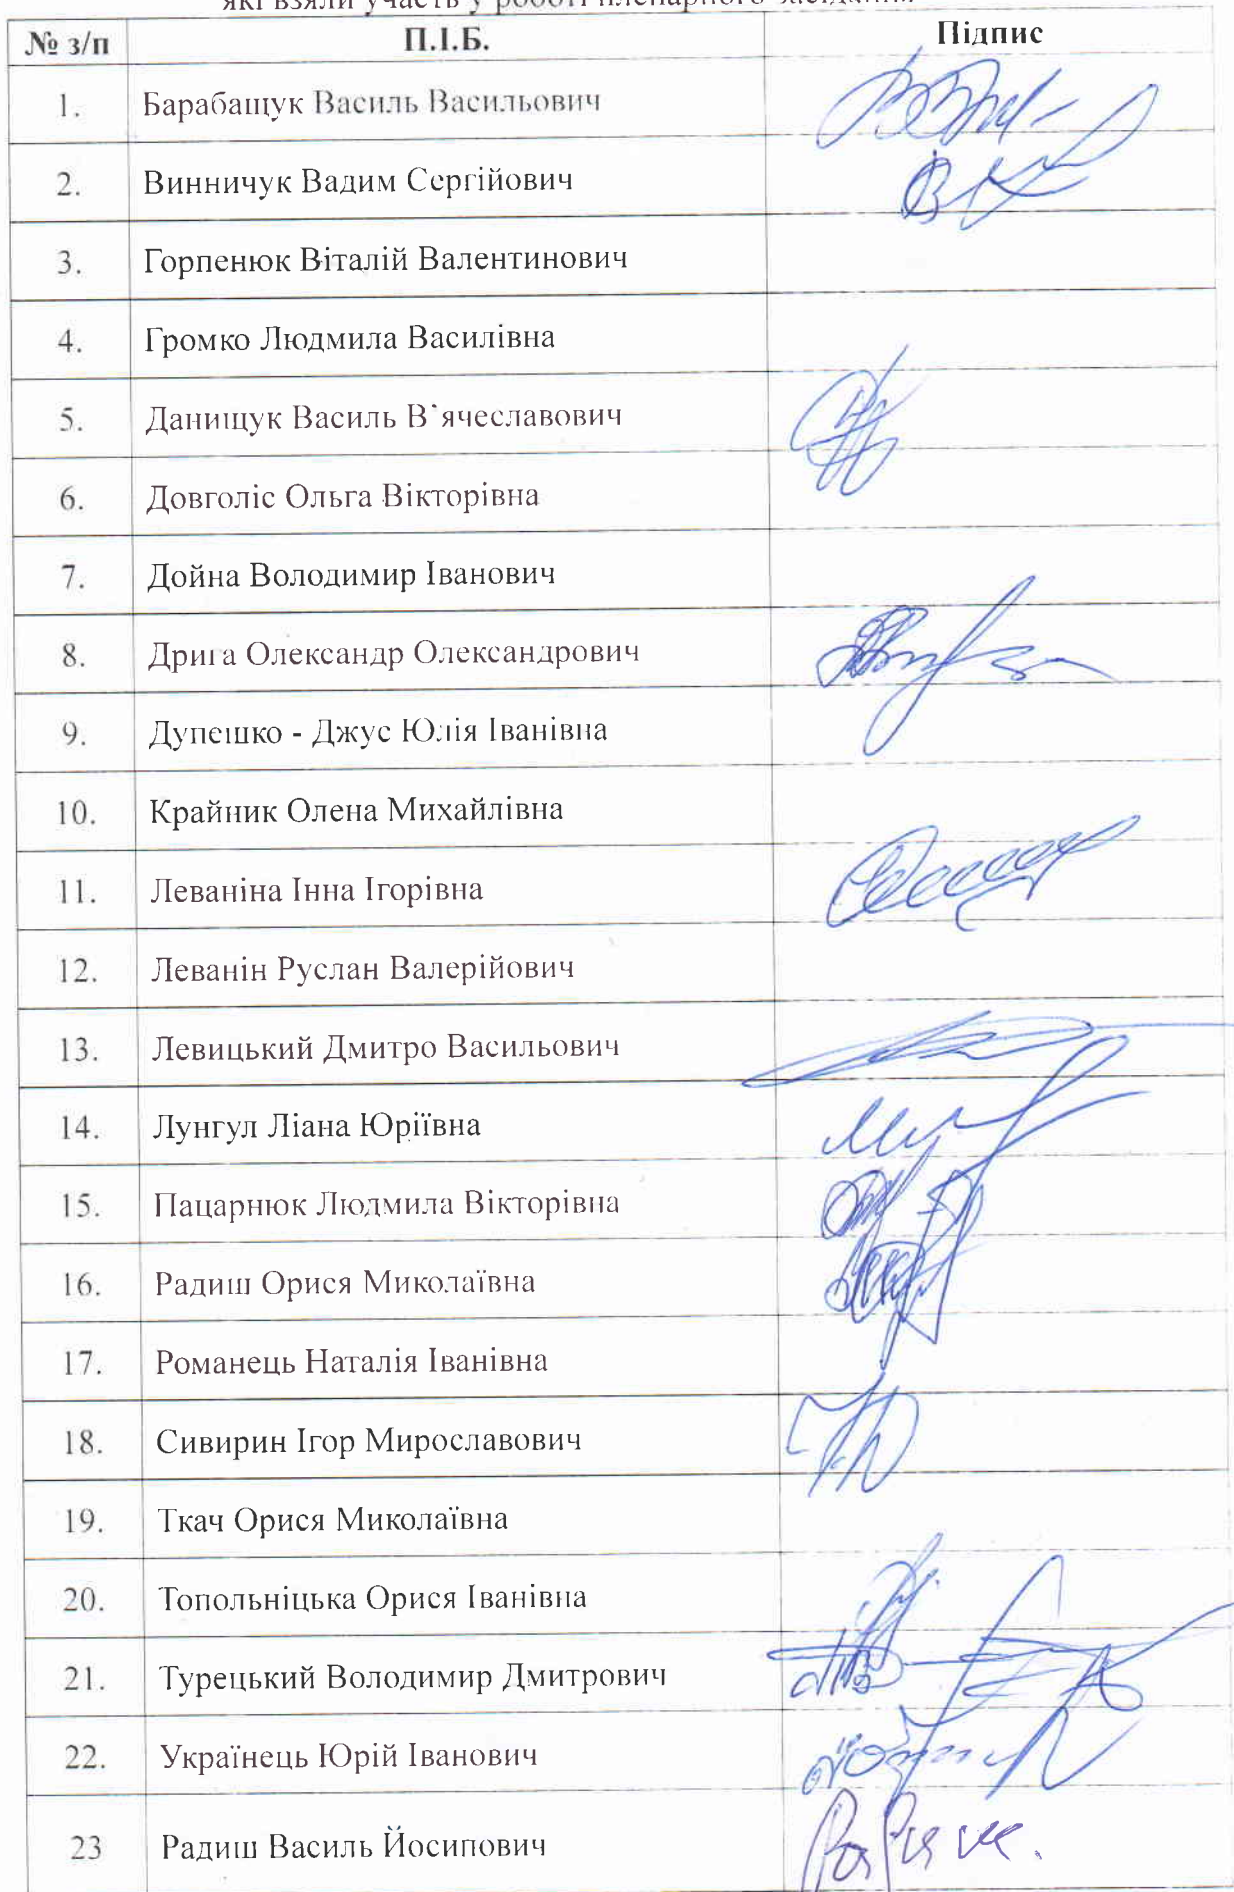 які взяли участь у роботі пленарного засідання
№ з/п П.І.Б. Підпис
1. Барабащук Василь Васильович
2. Винничук Вадим Сергійович
3. Горпенюк Віталій Валентинович
4. Громко Людмила Василівна
5. Данищук Василь В`ячеславович
6. Довголіс Ольга Вікторівна
7. Дойна Володимир Іванович
8. Дрига Олександр Олександрович
9. Дупешко - Джус Юлія Іванівна
10. Крайник Олена Михайлівна
11. Леваніна Інна Ігорівна
12. Леванін Руслан Валерійович
13. Левицький Дмитро Васильович
14. Лунгул Ліана Юріївна
15. Пацарнюк Людмила Вікторівна
16. Радиш Орися Миколаївна
17. Романець Наталія Іванівна
18. Сивирин Ігор Мирославович
19. Ткач Орися Миколаївна
20. Топольніцька Орися Іванівна
21. Турецький Володимир Дмитрович
22. Українець Юрій Іванович
23 Радиш Василь Йосипович